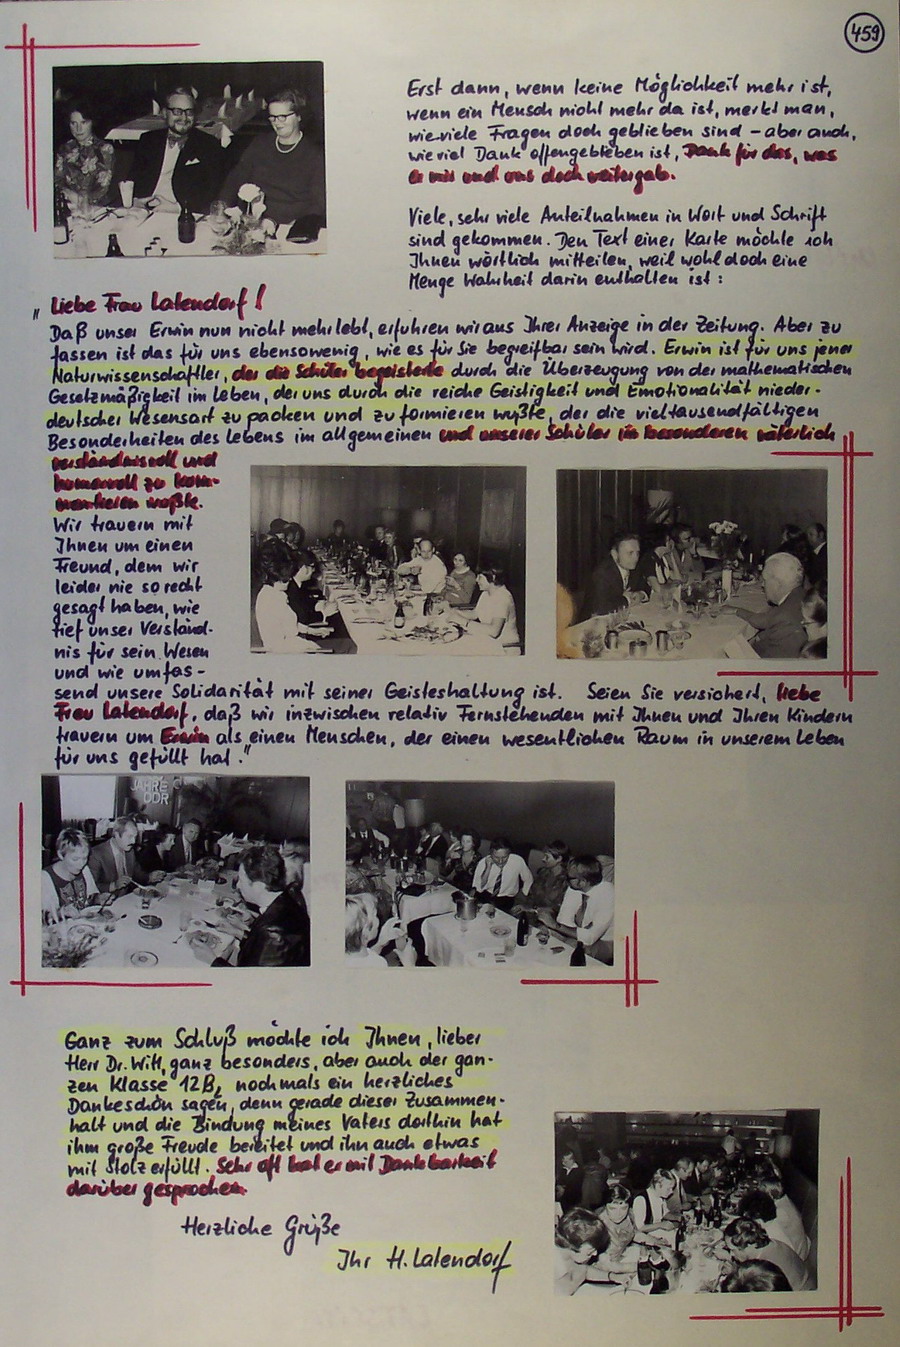 459
Erst dann, wenn keine Möglichkeit mehr ist,
wenn ein Mensch nicht mehr da ist, merkt man,
wieviele Fragen doch geblieben sind – aber auch,
wieviel Dank offengeblieben ist, Dank für das, was
er mir und uns doch weitergab.
Viele, sehr viele Anteilnahmen in Wort und Schrift
sind gekommen. Den Text einer Karte möchte ich
Ihnen wörtlich mitteilen, weil wohl doch eine
Menge Wahrheit darin enthalten ist:
"Liebe Frau Latendorf!
Daß unser Erwin nun nicht mehr lebt, erfuhren wir aus Ihrer Anzeige in der Zeitung. Aber zu
fassen ist das für uns ebensowenig, wie es für Sie begreifbar sein wird. Erwin ist für uns jener
Naturwissenschaftler, der die Schüler begeisterte durch die Überzeugung von der mathematischen
Gesetzmäßigkeit im Leben, der uns durch die reiche Geistigkeit und Emotionalität nieder-
deutscher Wesensart zu packen und zu formieren wußte, der die vieltausendfältigen
Besonderheiten des Lebens im allgemeinen und unserer Schüler im besonderen väterlich
verständnisvoll und
humorvoll zu kom-
mentieren wußte.
Wir trauern mit
Ihnen um einen
Freund, dem wir
leider nie so recht
gesagt haben, wie
tief unser Verständ-
nis für sein Wesen
und wie umfas-
send unsere Solidarität mit seiner Geisteshaltung ist. Seien Sie versichert, liebe
Frau Latendorf, daß wir inzwischen relativ Fernstehenden mit Ihnen und Ihren Kindern
trauern um Erwin als einen Menschen, der einen wesentlichen Raum in unserem Leben
für uns gefüllt hat."
JAHRE
DDR
Ganz zum Schluß möchte ich Ihnen, lieber
Herr Dr. Witt, ganz besonders, aber auch der gan-
zen Klasse 12B, nochmals ein herzliches
Dankeschön sagen, denn gerade dieser Zusammen-
halt und die Bindung meines Vaters dorthin hat
ihm große Freude bereitet und ihn auch etwas
mit Stolz erfüllt. Sehr oft hat er mit Dankbarkeit
darüber gesprochen.
Herzliche Grüße
Ihr H. Latendorf